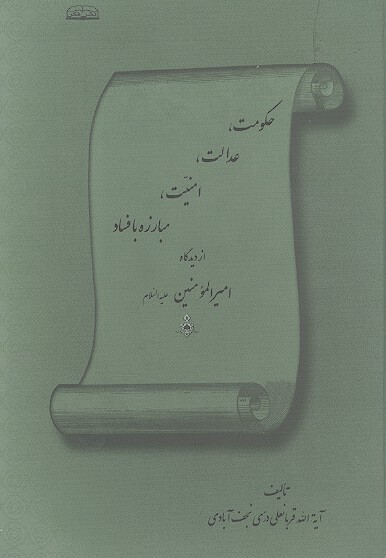 نشر فکر
حکومت،
عدالت،
امنیّت،
مبارزه با فساد
از دیدگاه
امیرالمؤمنین علیه السلام
تالیف
آیة الله قربانعلی درّی نجف آبادی